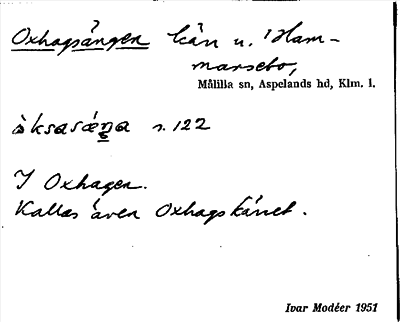 Oxhagsängen kän u. Ham-
marsebo,
Målilla sn, Aspelands hd, Klm. l.
s. 122
I Oxhagen.
Kallas även Oxhagskärret.
Ivar Modéer 1951